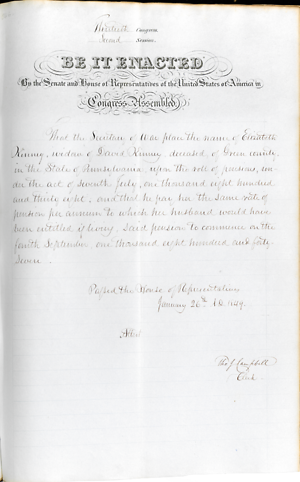 Thirtieth Congress
Second Session
BE IT ENACTED
By the Senate and House of Representatives of the United States of America in
Congress Assembled,
That the Secretary of War place the name of Elizabeth
Kinney, widow of David Kinney deceased, of Green county
in the State of Pennsylvania, upon the roll of pensions, un-
der the act of seventh July, one thousand eight hundred
and thirty eight, and that he pay her the same rate of
pension per annum to which her husband would have
been entitled if living. Said pension to commence on the
fourth September, one thousand eight hundred and forty
seven.
Passed the House of Representatives
January 26th A.D. 1849.
Attest
Tho. J. Campbell
Clerk